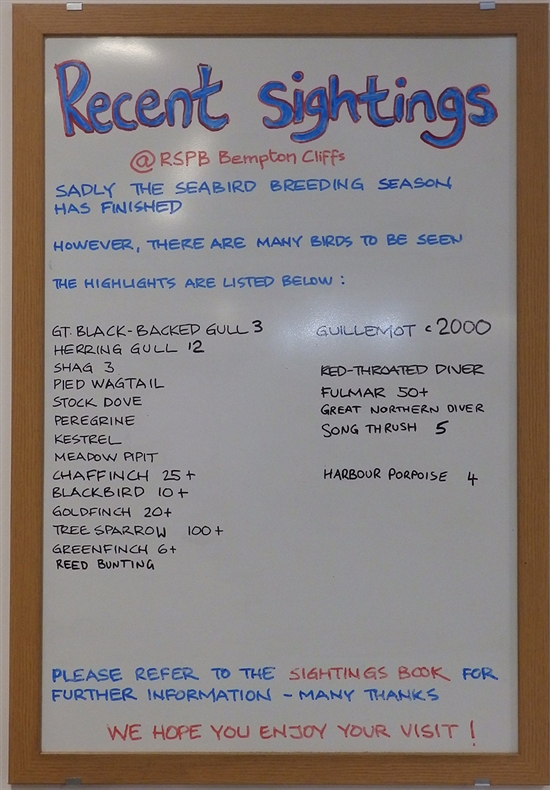 Recent Sightings
@ RSPB Bempton Cliffs
SADLY THE SEABIRD BREEDING SEASON
HAS FINISHED
HOWEVER, THERE ARE MANY BIRDS TO BE SEEN
THE HIGHLIGHTS ARE LISTED BELOW :
GT. BLACK-BACKED GULL 3
HERRING GULL 12
SHAG 3
PIED WAGTAIL
STOCK DOVE
PEREGRINE
KESTREL
MEADOW PIPIT
CHAFFINCH 25+
BLACKBIRD 10+
GOLDFINCH 20+
TREE SPARROW 100+
GREENFINCH 6+
REED BUNTING
GUILLEMOT c2000
RED-THROATED DIVER
FULMAR 50+
GREAT NORTHERN DIVER
SONG THRUSH 5
HARBOUR PORPOISE 4
PLEASE REFER TO THE SIGHTINGS BOOK FOR
FURTHER INFORMATION - MANY THANKS
WE HOPE YOU ENJOY YOUR VISIT !